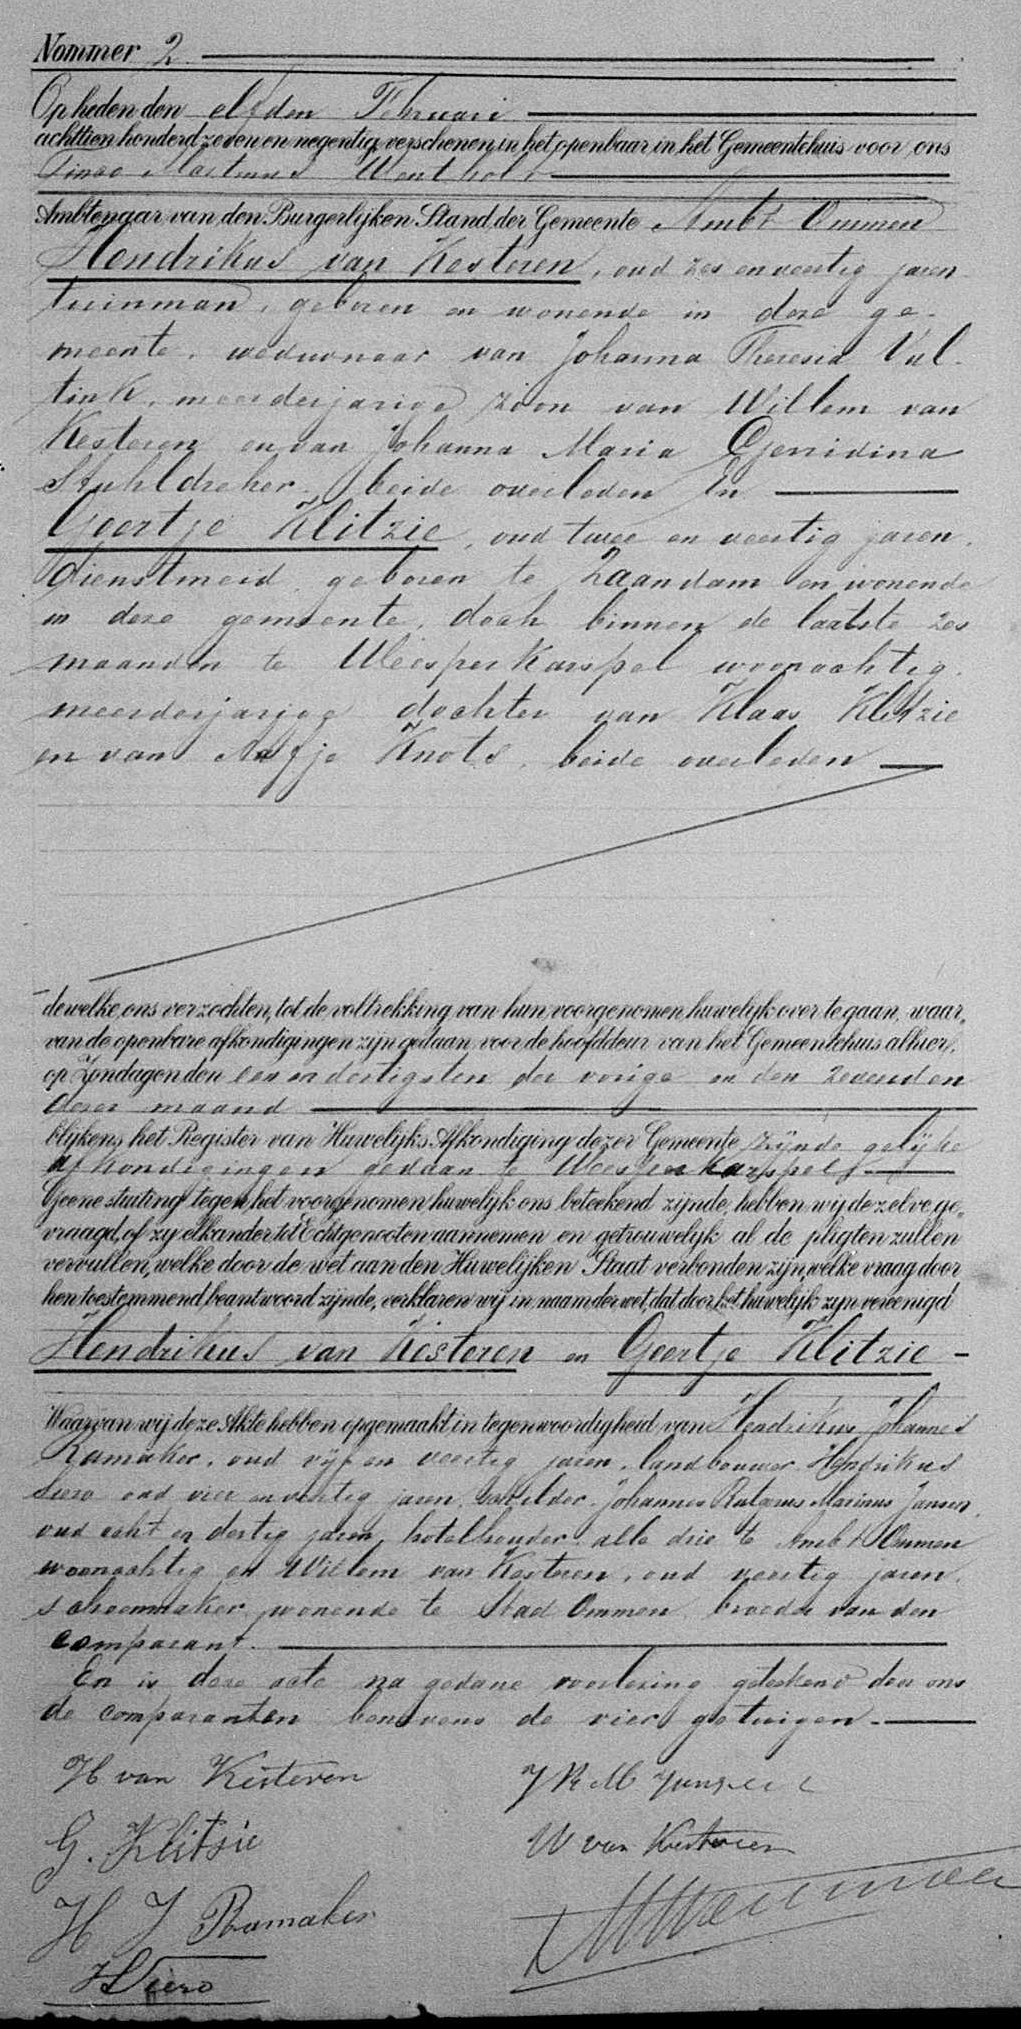 Nommer 2.
Op heden den elfden Februari
achttien honderd zeven en negentig, verschenen in het openbaar in het Gemeentehuis voor ons
Ambtenaar van den Burgerlijken Stand der Gemeente Ambt Ommen
Hendrikus van Kesteren, oud zes en veertig jaren
tuinman, geboren en wonende in deze ge-
meente, weduwnaar van Johanna Theresia Vul-
tink, meerderjarige zoon van Willem van
Kesteren en van Johanna Maria Gerridina
Stuhldreher, beide overleden En
Geertje Klitzie, oud twee en veertig jaren,
dienstmeid, geboren te Zaandam en wonende
in deze gemeente, doch binnen de laatste zes
maanden te Weesperkarspel woonachtig,
meerderjarige dochter van Klaas Klitzie
en van Aafje Knots, beide overleden
dewelke ons verzochten, tot de voltrekking van hun voorgenomen huwelijk over te gaan, waar-
van de openbare afkondigingen zijn gedaan voor de hoofddeur van het Gemeentehuis alhier,
op Zondagen den een en dertigsten der vorige en den zevenden
dezer maand
blijkens het Register van Huwelijks Afkondiging dezer Gemeente zijnde gelijke
afkondigingen gedaan te Weesperkarspel
Geene stuiting tegen het voorgenomen huwelijk ons beteekend zijnde, hebben wij dezelve ge-
vraagd, of zij elkander tot Echtgenooten aannemen en getrouwelijk al de pligten zullen
vervullen, welke door de wet aan den Huwelijken Staat verbonden zijn, welke vraag door
hen toestemmend beantwoord zijnde, verklaren wij in naam der wet, dat door het huwelijk zijn vereenigd
Hendrikus van Kesteren en Geertje Klitzie -
Waarvan wij deze Akte hebben opgemaakt in tegenwoordigheid van Hendrikus Johannes
Ramaker, oud vijf en veertig jaren, landbouwer, Hendrikus
oud vier en veertig jaren, schilder, Johannes Rutgerus Marinus Jansen,
oud acht en dertig jaren, hotelhouder, alle drie te Ambt Ommen
woonachtig en Willem van Kesteren, oud veertig jaren,
schoenmaker, wonende te Stad Ommen, broeder van den
comparant.
En is deze acte na gedane voorlezing geteekend door ons
de comparanten benevens de vier getuigen.
H van Kesteren
J R M Jansen
G. Klitsie
W van Kesteren
H J Ramaker